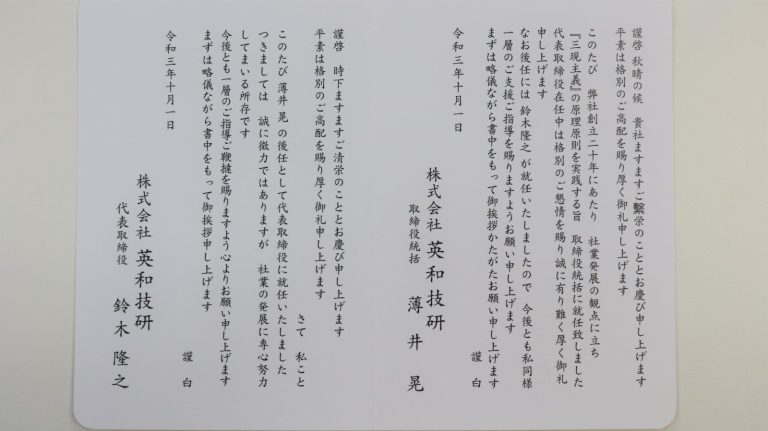 謹啓 秋晴の候 貴社ますますご繫栄のこととお慶び申し上げます
平素は格別のご高配を賜り厚く御礼申し上げます
このたび 弊社創立二十年にあたり 社業発展の観点に立ち
『三現主義』の原理原則を実践する旨 取締役統括に就任致しました
代表取締役在任中は格別のご懇情を賜り誠に有り難く厚く御礼
申し上げます
なお後任には 鈴木隆之 が就任いたしましたので 今後とも私同様
一層のご支援ご指導を賜りますようお願い申し上げます
まずは略儀ながら書中をもって御挨拶かたがたお願い申し上げます
謹白
令和三年十月一日
株式会社 英和技研
取締役統括 薄井 晃
謹啓 時下ますますご清栄のこととお慶び申し上げます
平素は格別のご高配を賜り厚く御礼申し上げます
さて 私こと
このたび 薄井 晃 の後任として代表取締役に就任いたしました
つきましては 誠に微力ではありますが 社業の発展に専心努力
してまいる所存です
今後とも一層のご指導ご鞭撻を賜りますよう心よりお願い申し上げます
まずは略儀ながら書中をもって御挨拶申し上げます
謹白
令和三年十月一日
株式会社 英和技研
代表取締役 鈴木隆之